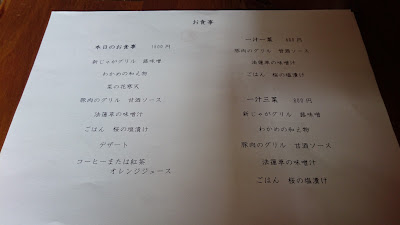 お食事
本日のお食事　1500円
新じゃがグリル　蕗味噌
わかめの和え物
菜の花寒天
豚肉のグリル　甘酒ソース
法蓮草の味噌汁
ごはん　桜の塩漬け
デザート
コーヒーまたは紅茶
オレンジジュース
一汁一菜
豚肉のグリル　甘酒ソース
法蓮草の味噌汁
ごはん　桜の塩漬け
一汁三菜
新じゃがグリル　蕗味噌
わかめの和え物
豚肉のグリル　甘酒ソース
法蓮草の味噌汁
ごはん　桜の塩漬け